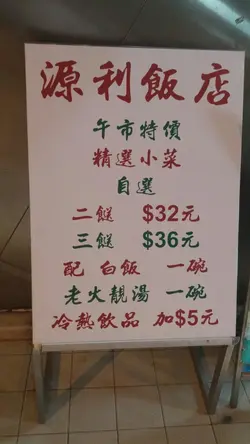 源利飯店
午市特價
精選小菜
自選
二餸 $32元
三餸 $36元
配 白飯 一碗
老火靚湯 一碗
冷熱飲品 加$5元